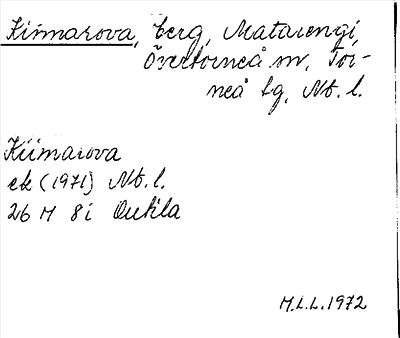 Kiimarova, berg, Matarengi,
Övertorneå sn, Tor-
neå tg, Nb. l.
Kiimarova
ek (1971) Nb. l.
26 M 8i Oukila
M.L.L. 1972